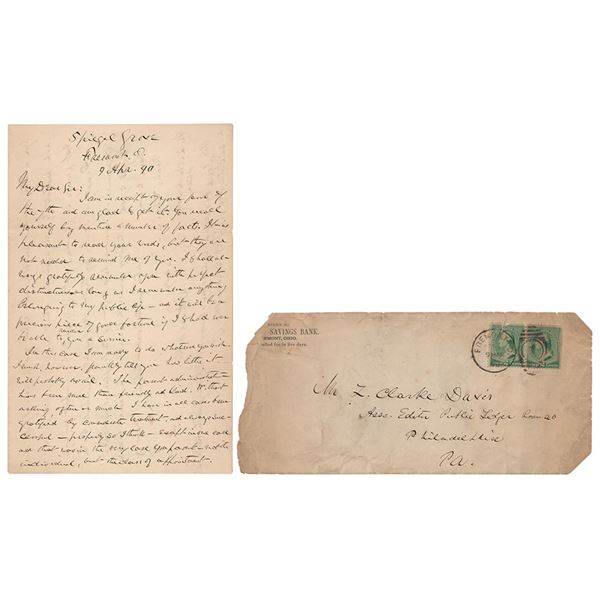 Spiegel Grove
Fremont O.
9 Apr. 90
My Dear Sir:
I am in receipt of your favor of
the 7th and am glad to get it. You recall
yourself by mention a number of facts. It is
pleasant to read your words, but they are
not needed to remind me of you. I shall al-
ways gratefully remember you with perfect
distinctness as long as I remember anything
belonging to my public life - and it will be a
precious piece of good fortune if I shall ever
be able to you a service.
In this case I am ready to do what you wish.
I must, however, frankly tell you how little it
will probably avail. The present administration
has been more than friendly and kind.
nothing often or much. I have in all cases been
gratified by considerate treatment, and always suc-
cessful - properly so I think - except in one case
and that was in the very case you
individual, but the class of appointment.
SAVINGS BANK,
FREMONT, OHIO.
in five days.
FREMONT
Mr L. Clarke Davis
Asso. Editor Public Ledger
Philadelphia
Pa.